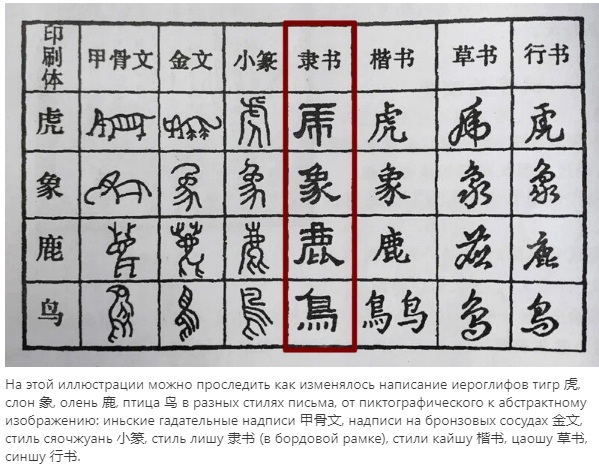 印刷体 甲骨文 金文 小篆 隶书 楷书 草书 行书
虎 虎 虎 虎 虎 虎 虎 虎
象 象 象 象 象 象 象 象
鹿 鹿 鹿 鹿 鹿 鹿 鹿 鹿
鸟 鳥 鳥 鳥 鳥 鳥鸟 鸟 鸟
На этой иллюстрации можно проследить как изменялось написание иероглифов тигр 虎,
слон 象, олень 鹿, птица 鸟 в разных стилях письма, от пиктографического к абстрактному
изображению: иньские гадательные надписи 甲骨文, надписи на бронзовых сосудах 金文,
стиль сяочжуань 小篆, стиль лишу 隶书 (в бордовой рамке), стили кайшу 楷书, цаошу 草书,
синшу 行书.